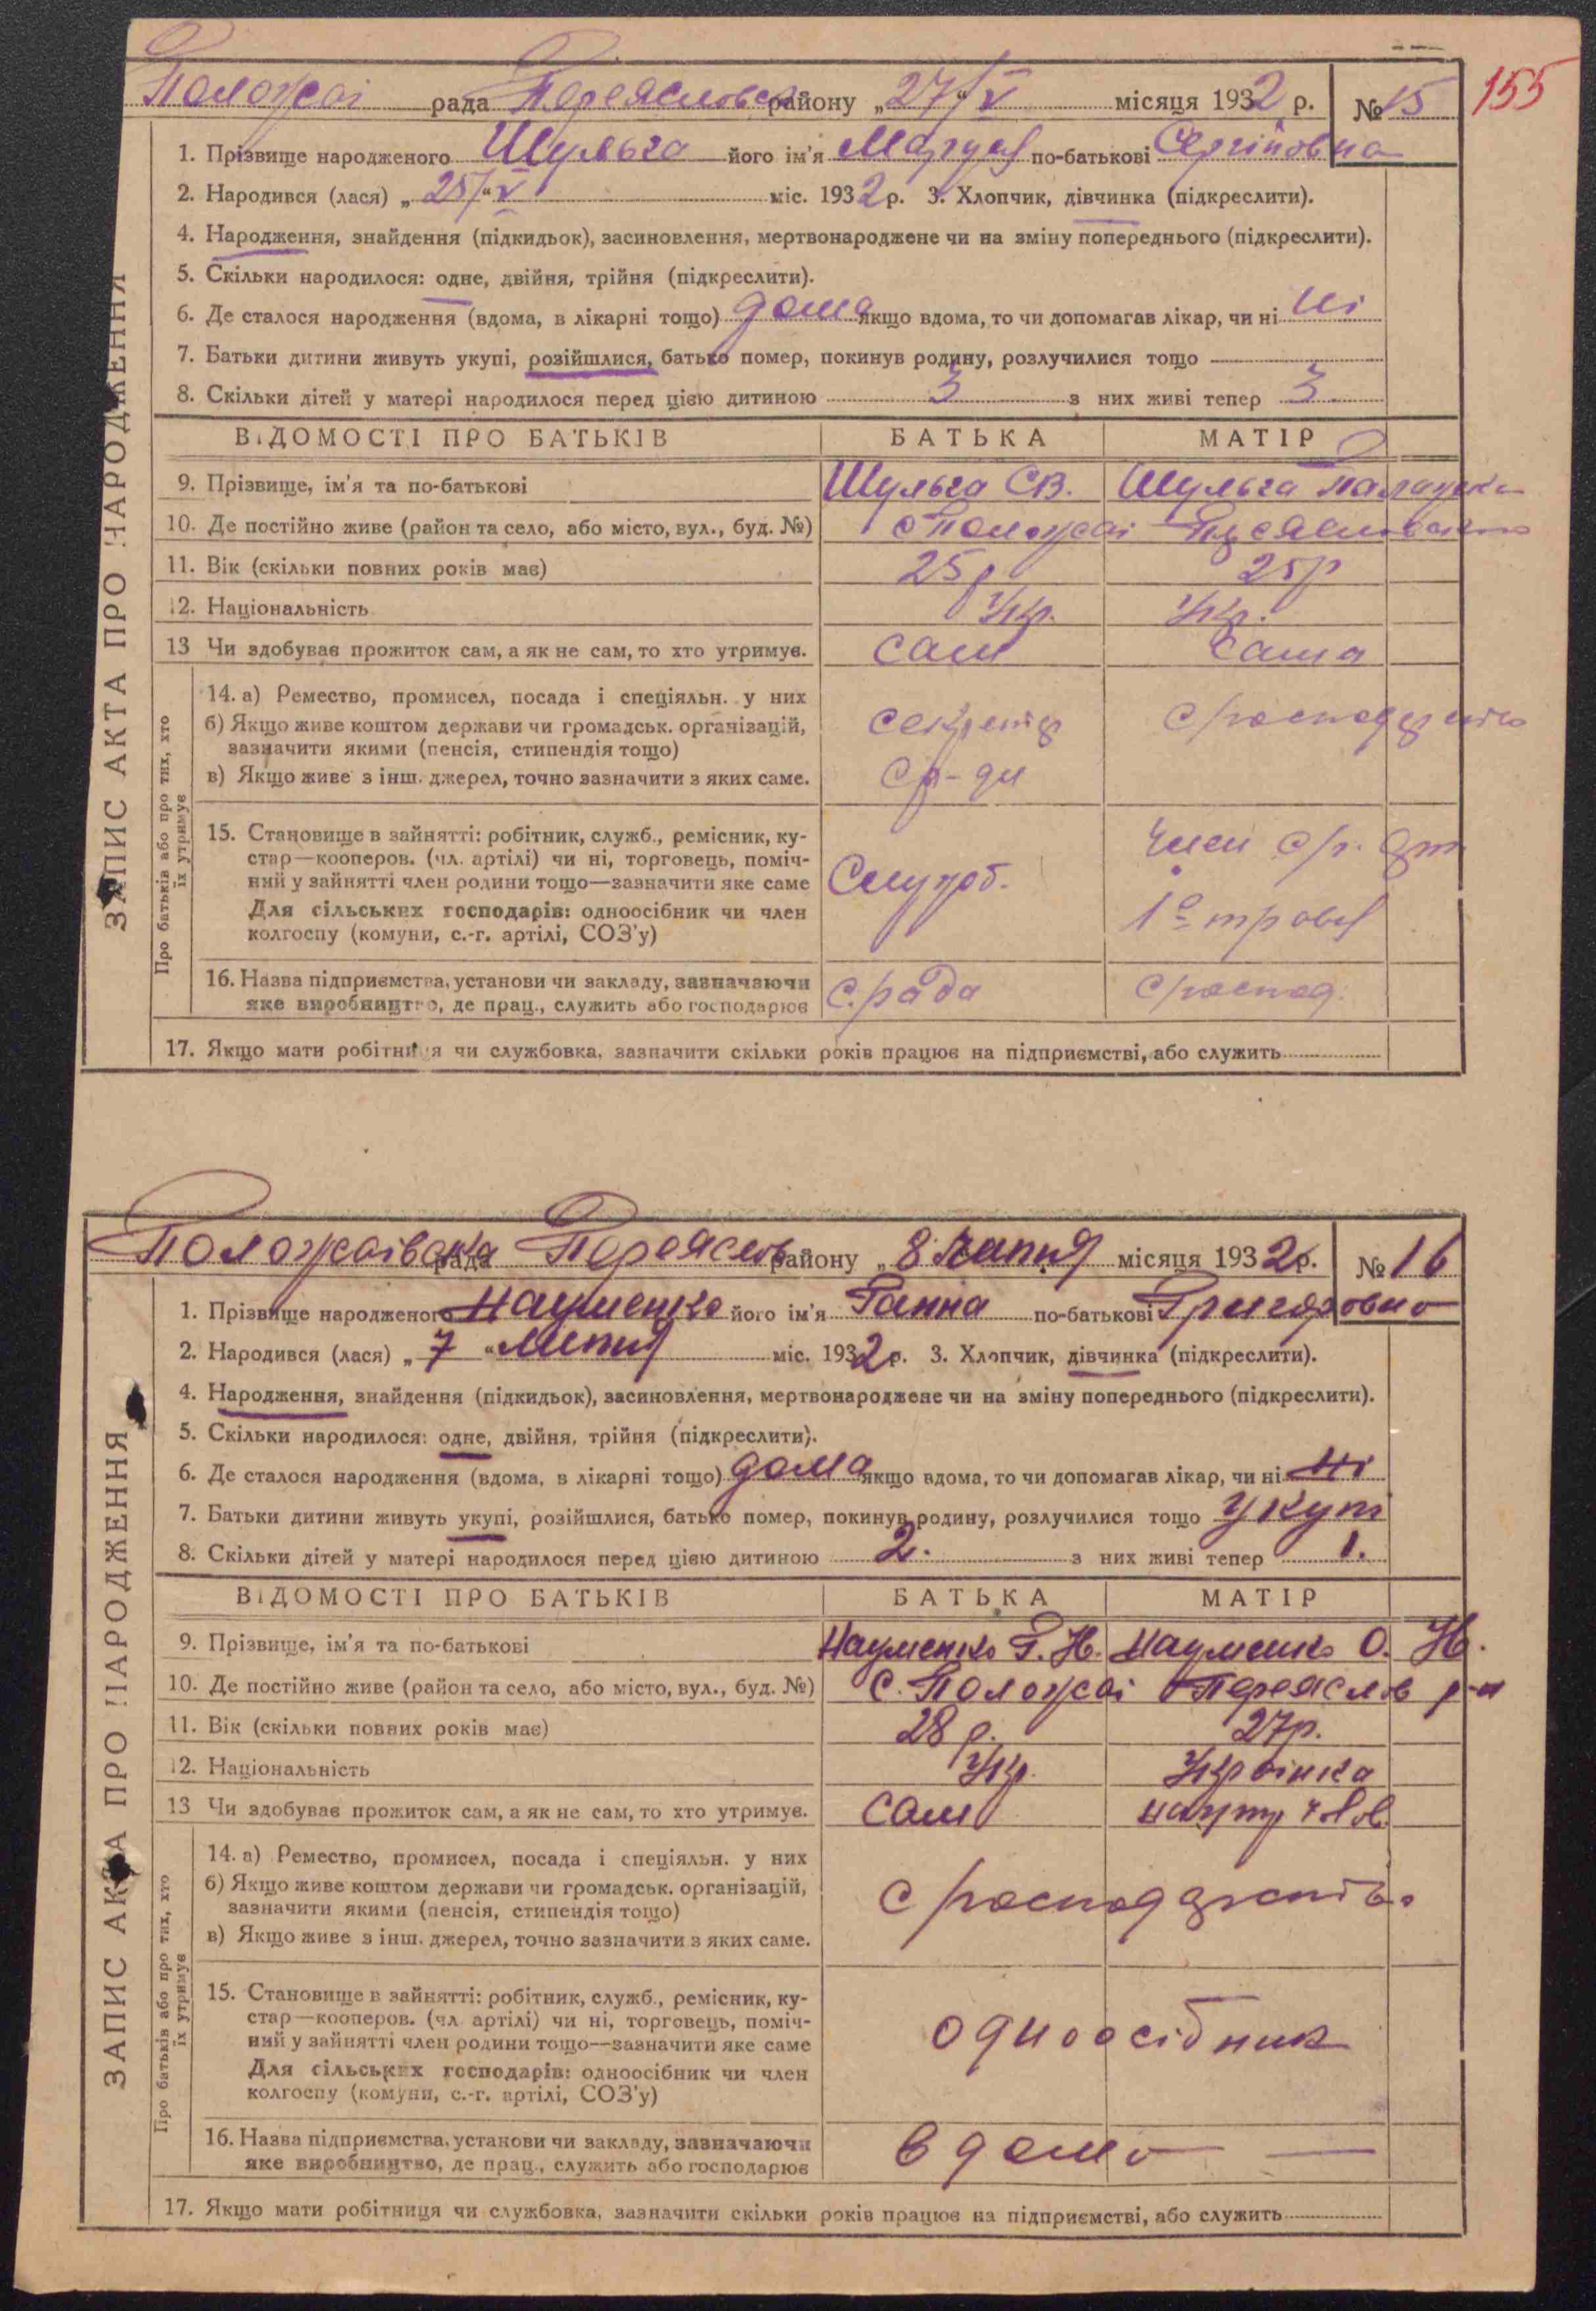 155
Положаі рада Переясловск району „27/V“ місяця 1932 р. № 15
1. Прізвище народженого Шульга його ім'я Маруся по-батькові Сергійовна
2. Народився (лася) „25/“ V міс. 1932 р. 3. Хлопчик, дівчинка (підкреслити).
4. Народження, знайдення (підкидьок), засиновлення, мертвонароджене чи на зміну попереднього (підкреслити).
5. Скільки народилося: одне, двійня, трійня (підкреслити).
6. Де сталося народження (вдома, в лікарні тощо) дома якщо вдома, то чи допомагав лікар, чи ні ні
7. Батьки дитини живуть укупі, розійшлися, батько помер, покинув родину, розлучилися тощо
8. Скільки дітей у матері народилося перед цією дитиною 3 з них живі тепер 3
ВІДОМОСТІ ПРО БАТЬКІВ БАТЬКА МАТІР
9. Прізвище, ім'я та по-батькові Шульга С.В. Шульга Палажка
10. Де постійно живе (район та село, або місто, вул., буд. №) с Положаі
11. Вік (скільки повних років має) 25 р 25 р
12. Національність Укр. Укр.
13 Чи здобуває прожиток сам, а як не сам, то хто утримує. сам сама
14. а) Ремество, промисел, посада і спеціяльн. у них
б) Якщо живе коштом держави чи громадськ. організацій,
зазначити якими (пенсія, стипендія тощо)
в) Якщо живе з інш. джерел, точно зазначити з яких саме.
секретар
с/р-ди
15. Становище в зайнятті: робітник, служб., ремісник, ку-
стар—кооперов. (чл. артілі) чи ні, торговець, поміч-
ний у зайнятті член родини тощо—зазначити яке саме
Для сільських господарів: одноосібник чи член
колгоспу (комуни, с.-г. артілі, СОЗ'у)
Служб.
1го травня
16. Назва підприємства, установи чи закладу, зазначаючи
яке виробництво, де прац., служить або господарює
с. рада с/господ.
17. Якщо мати робітниця чи службовка, зазначити скільки років працює на підприємстві, або служить
ЗАПИС АКТА ПРО НАРОДЖЕННЯ
Про батьків або про тих, хто
їх утримує
Положаівська рада Переяслов району „8“ Липня місяця 1932 р. № 16
1. Прізвище народженого Науменко його ім'я Ганна по-батькові Григоровно
2. Народився (лася) „7“ липня міс. 1932 р. 3. Хлопчик, дівчинка (підкреслити).
4. Народження, знайдення (підкидьок), засиновлення, мертвонароджене чи на зміну попереднього (підкреслити).
5. Скільки народилося: одне, двійня, трійня (підкреслити).
6. Де сталося народження (вдома, в лікарні тощо) дома якщо вдома, то чи допомагав лікар, чи ні ні
7. Батьки дитини живуть укупі, розійшлися, батько помер, покинув родину, розлучилися тощо укупі
8. Скільки дітей у матері народилося перед цією дитиною 2. з них живі тепер 1.
ВІДОМОСТІ ПРО БАТЬКІВ БАТЬКА МАТІР
9. Прізвище, ім'я та по-батькові Науменко Г. Н. Науменко О. Н.
10. Де постійно живе (район та село, або місто, вул., буд. №) с. Положаі Переяслов р-н
11. Вік (скільки повних років має) 28 р. 27 р.
12. Національність Укр. Украінка
13 Чи здобуває прожиток сам, а як не сам, то хто утримує. сам
14. а) Ремество, промисел, посада і спеціяльн. у них
б) Якщо живе коштом держави чи громадськ. організацій,
зазначити якими (пенсія, стипендія тощо)
в) Якщо живе з інш. джерел, точно зазначити з яких саме.
15. Становище в зайнятті: робітник, служб., ремісник, ку-
стар—кооперов. (чл. артілі) чи ні, торговець, поміч-
ний у зайнятті член родини тощо—зазначити яке саме
Для сільських господарів: одноосібник чи член
колгоспу (комуни, с.-г. артілі, СОЗ'у)
одноосібник
16. Назва підприємства, установи чи закладу, зазначаючи
яке виробництво, де прац., служить або господарює
в дома —
17. Якщо мати робітниця чи службовка, зазначити скільки років працює на підприємстві, або служить
ЗАПИС АКТА ПРО НАРОДЖЕННЯ
Про батьків або про тих, хто
їх утримує